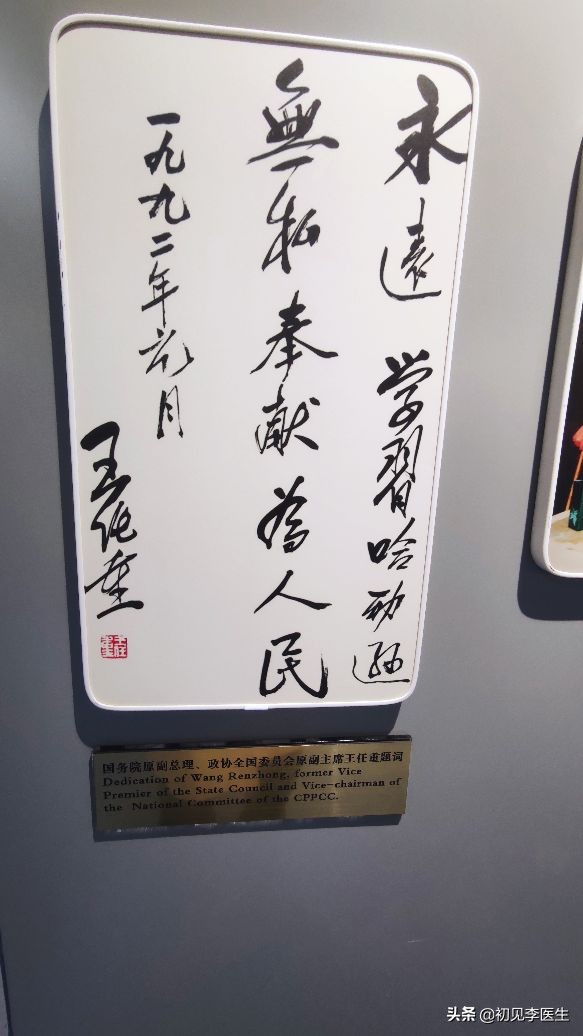 永遠学習哈励逊
無私奉献為人民
一九九二年元月
王任重
国务院原副总理、政协全国委员会原副主席王任重题词
Dedication of Wang Renzhong, former Vice
Premier of the State Council and Vice-chairman of
the National Committee of the CPPCC.
头条 @初见李医生